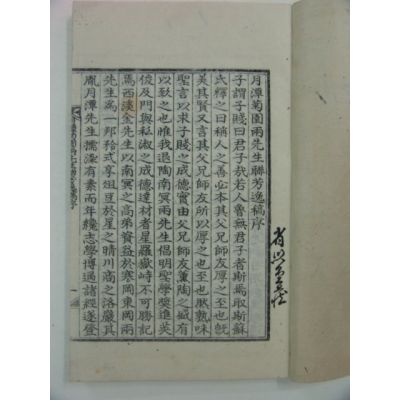 月潭菊園兩先生聯芳逸稿序
子謂子賤曰君子哉若人魯無君子者斯焉取斯蘇
氏釋之曰稱人之善必本其父兄師友厚之至也旣
美其賢又言其父兄師友所以厚之也至也厭熟味
聖言以求子賤之成德實由父兄師友薰陶之盛有
以致之也惟我退陶南冥兩先生倡明聖學奬進英
俊及門與私淑之成德達材者星羅嶽峙不可勝記
焉西溪金先生以南冥之高弟資益於寒岡東岡兩
先生爲一邦矜式享俎豆於星之晴川商之洛嚴其
胤月潭先生擩染有素而年纔志學博通諸經遂登